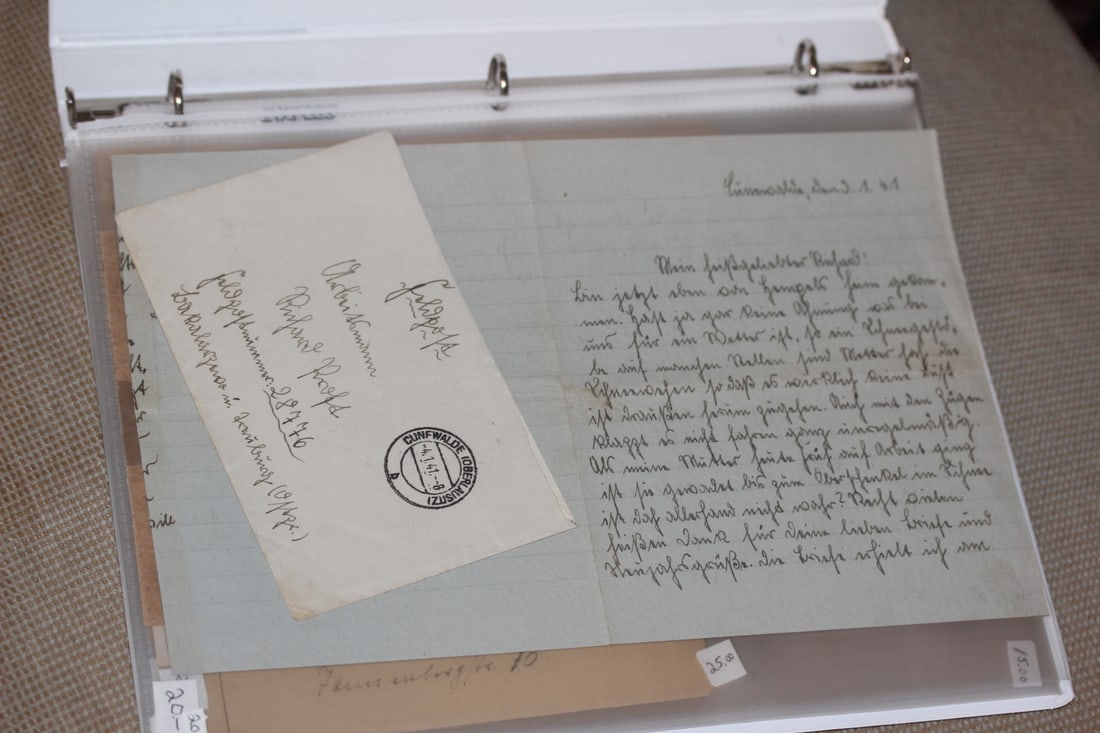 Cunewalde, den 3. 1. 41
Mein heißgeliebter Richard!
Bin jetzt eben von Hempels heim gekom-
men. Hast ja gar keine Ahnung was bei
uns für ein Wetter ist, so ein Schneegestö-
be auf manchen Stellen sind Meter hoh die
Schneewehen so daß es wirklich keine Lust
ist draußen herum zugehen. Auch mit den Zügen
klappt es nicht fahren ganz unregelmäßig.
Als meine Mutter heute früh auf Arbeit ging
ist sie gewadet bis zum Oberschenkel im Schnee
ist doch allerhand nicht wahr? Recht vielen
heißen Dank für Deine lieben Briefe und
Neujahrsgrüße. Die Briefe erhielt ich am
Feldpost
Arbeitsmann
Richard
Feldpostnummer 28776
CUNEWALDE (OBERLAUSITZ)
-4.1.41.-8
b
Tannenbergstr. 10
25.00
15.00
20.-
20